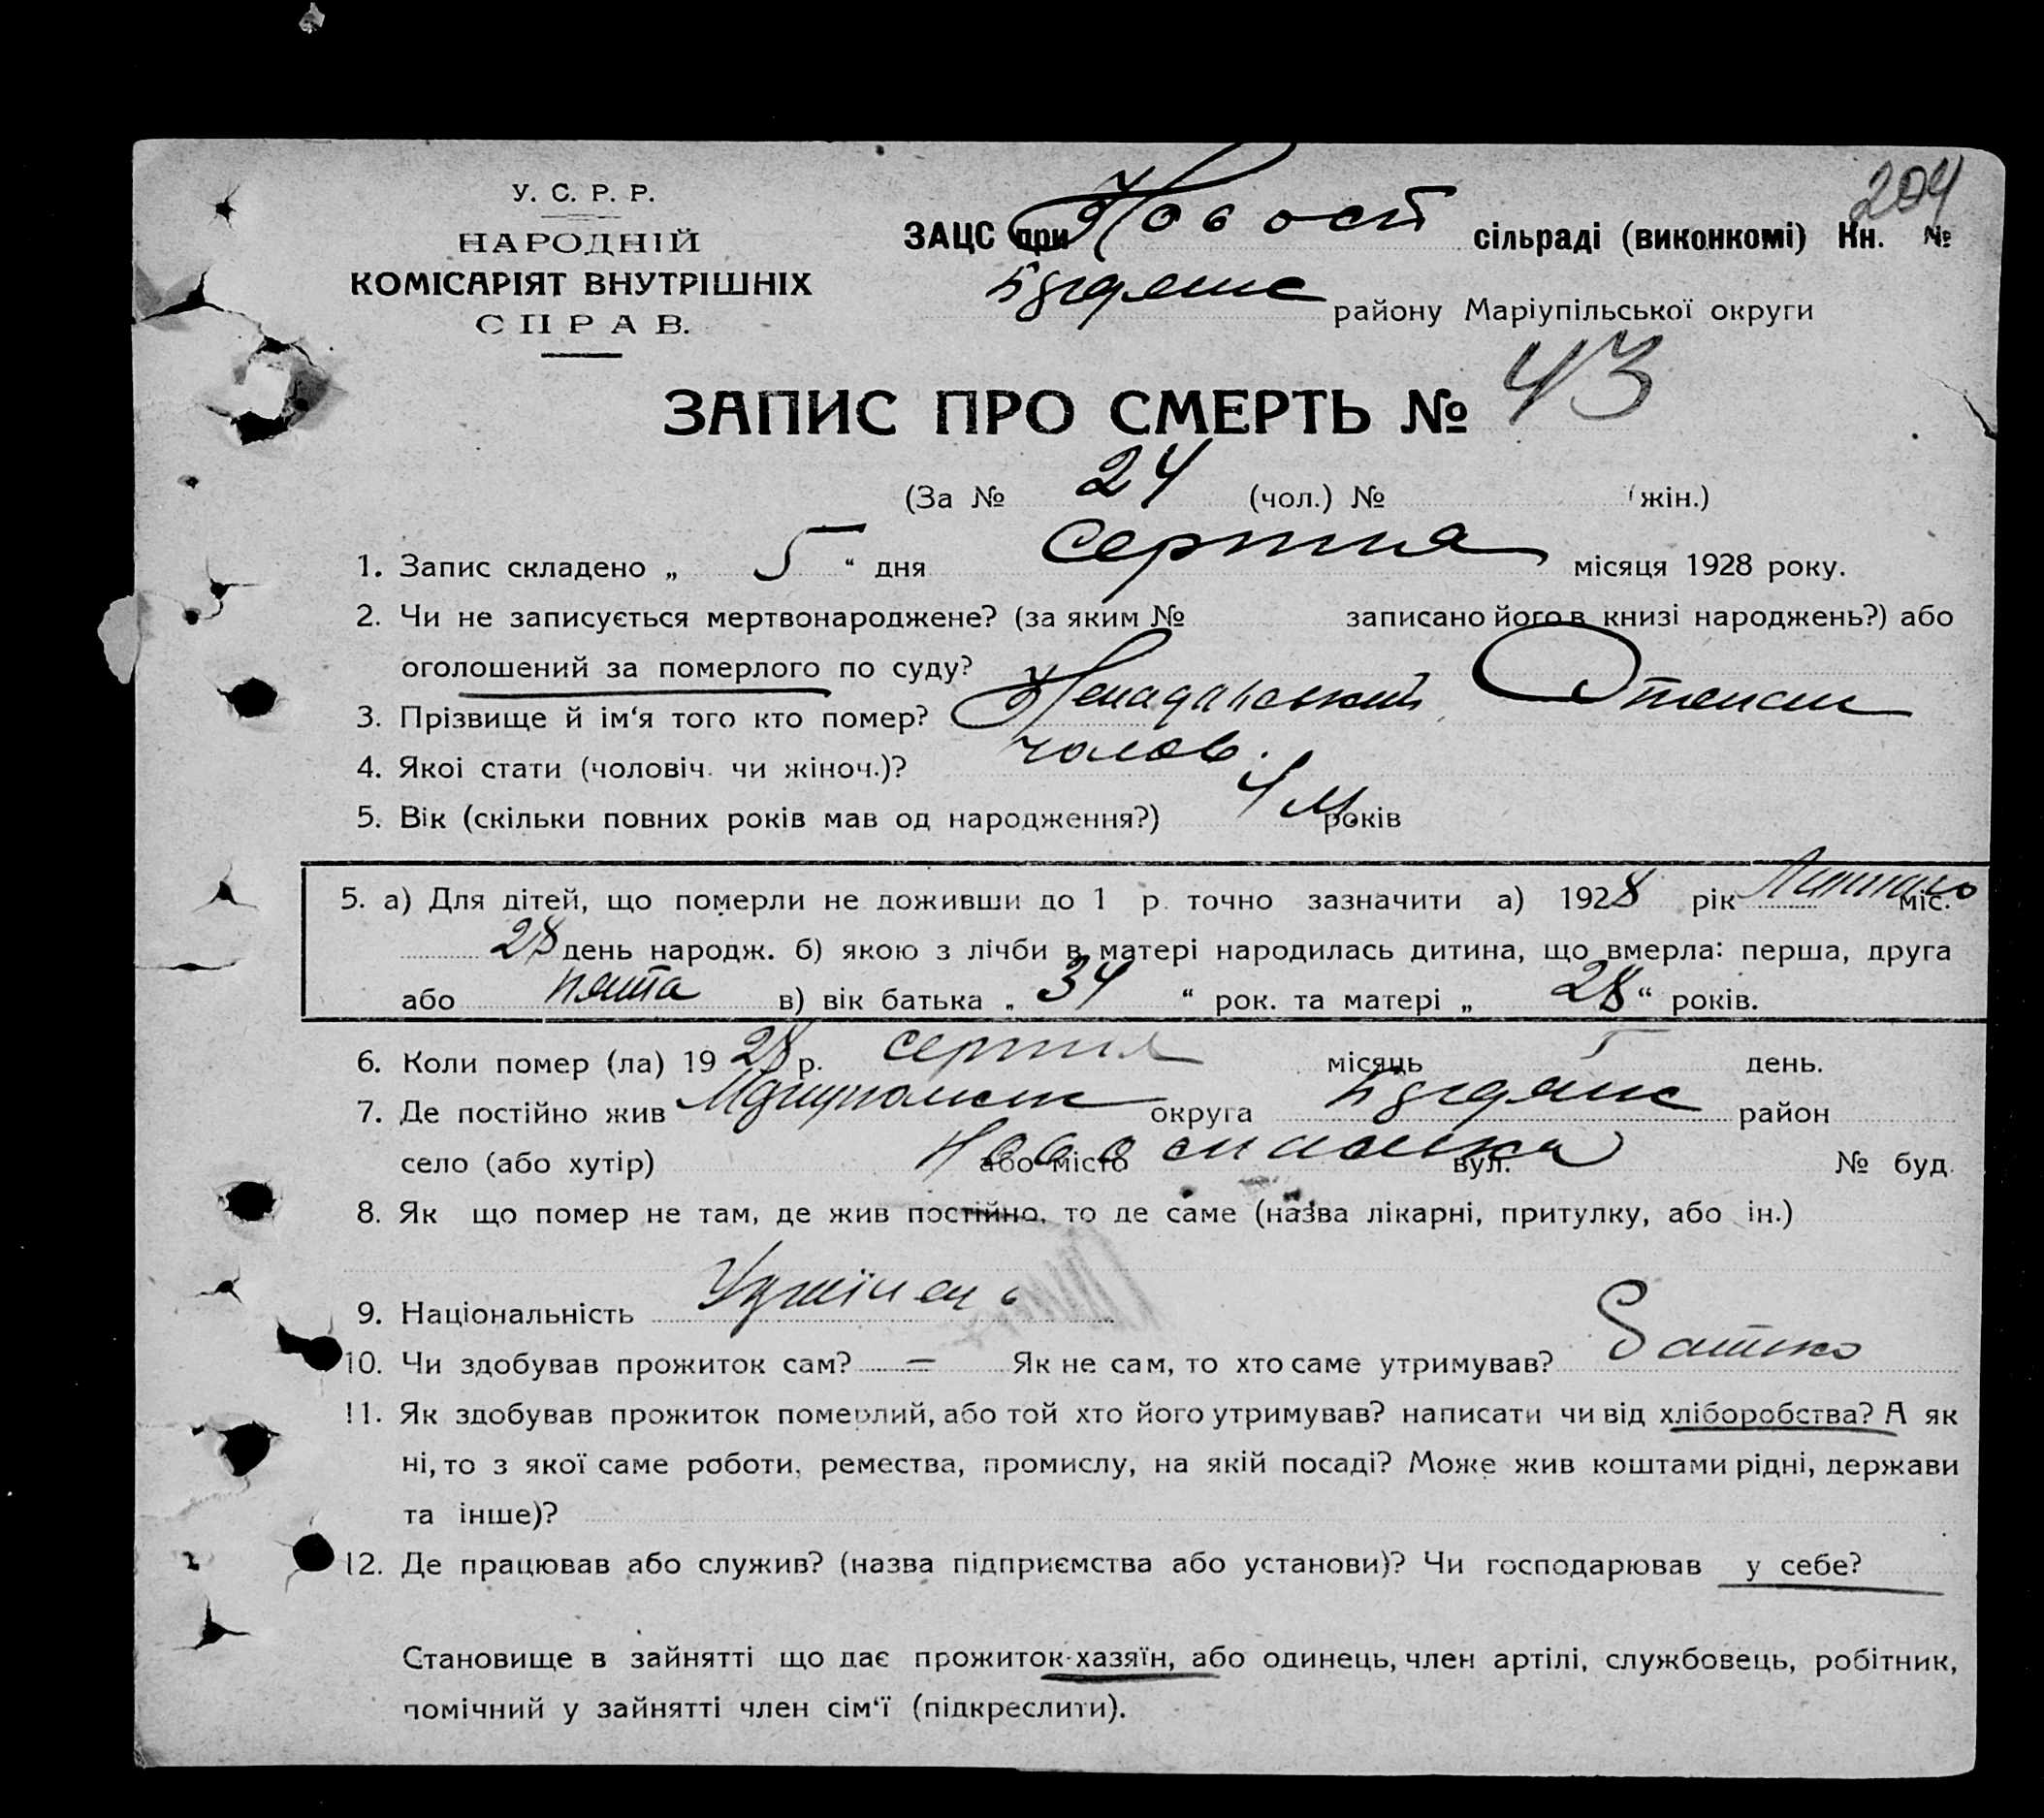 204
У. С. Р. Р.
НАРОДНІЙ
КОМІСАРІЯТ ВНУТРІШНІХ
СПРАВ.
ЗАЦС при Новосп сільраді (виконкомі) Кн. №
району Маріупільської округи
ЗАПИС ПРО СМЕРТЬ № 43
(За № 24 (чол.) № (жін.)
1. Запис складено „ 5 “ дня серпня місяця 1928 року.
2. Чи не записується мертвонароджене? (за яким № записано його в книзі народжень?) або
оголошений за померлого по суду?
3. Прізвище й ім‘я того кто помер?
4. Якоі стати (чоловіч. чи жіноч.)? чолов.
5. Вік (скільки повних років мав од народження?) 4 м років
5. а) Для дітей, що померли не доживши до 1 р. точно зазначити а) 1928 рік міс.
28 день народж. б) якою з лічби в матері народилась дитина, що вмерла: перша, друга
або пята в) вік батька „ 34 “ рок. та матері „ 28 “ років.
6. Коли помер (ла) 1928 р. серпня місяць 5 день.
7. Де постійно жив округа район
село (або хутір) або місто вул. № буд.
8. Як що помер не там, де жив постійно, то де саме (назва лікарні, притулку, або ін.)
9. Національність
10. Чи здобував прожиток сам? — Як не сам, то хто саме утримував? Батько
11. Як здобував прожиток померлий, або той хто його утримував? написати чи від хліборобства? А як
ні, то з якої саме роботи, ремества, промислу, на якій посаді? Може жив коштами рідні, держави
та інше)?
12. Де працював або служив? (назва підприємства або установи)? Чи господарював у себе?
Становище в зайнятті що дає прожиток-хазяїн, або одинець, член артілі, службовець, робітник,
помічний у зайнятті член сім‘ї (підкреслити).